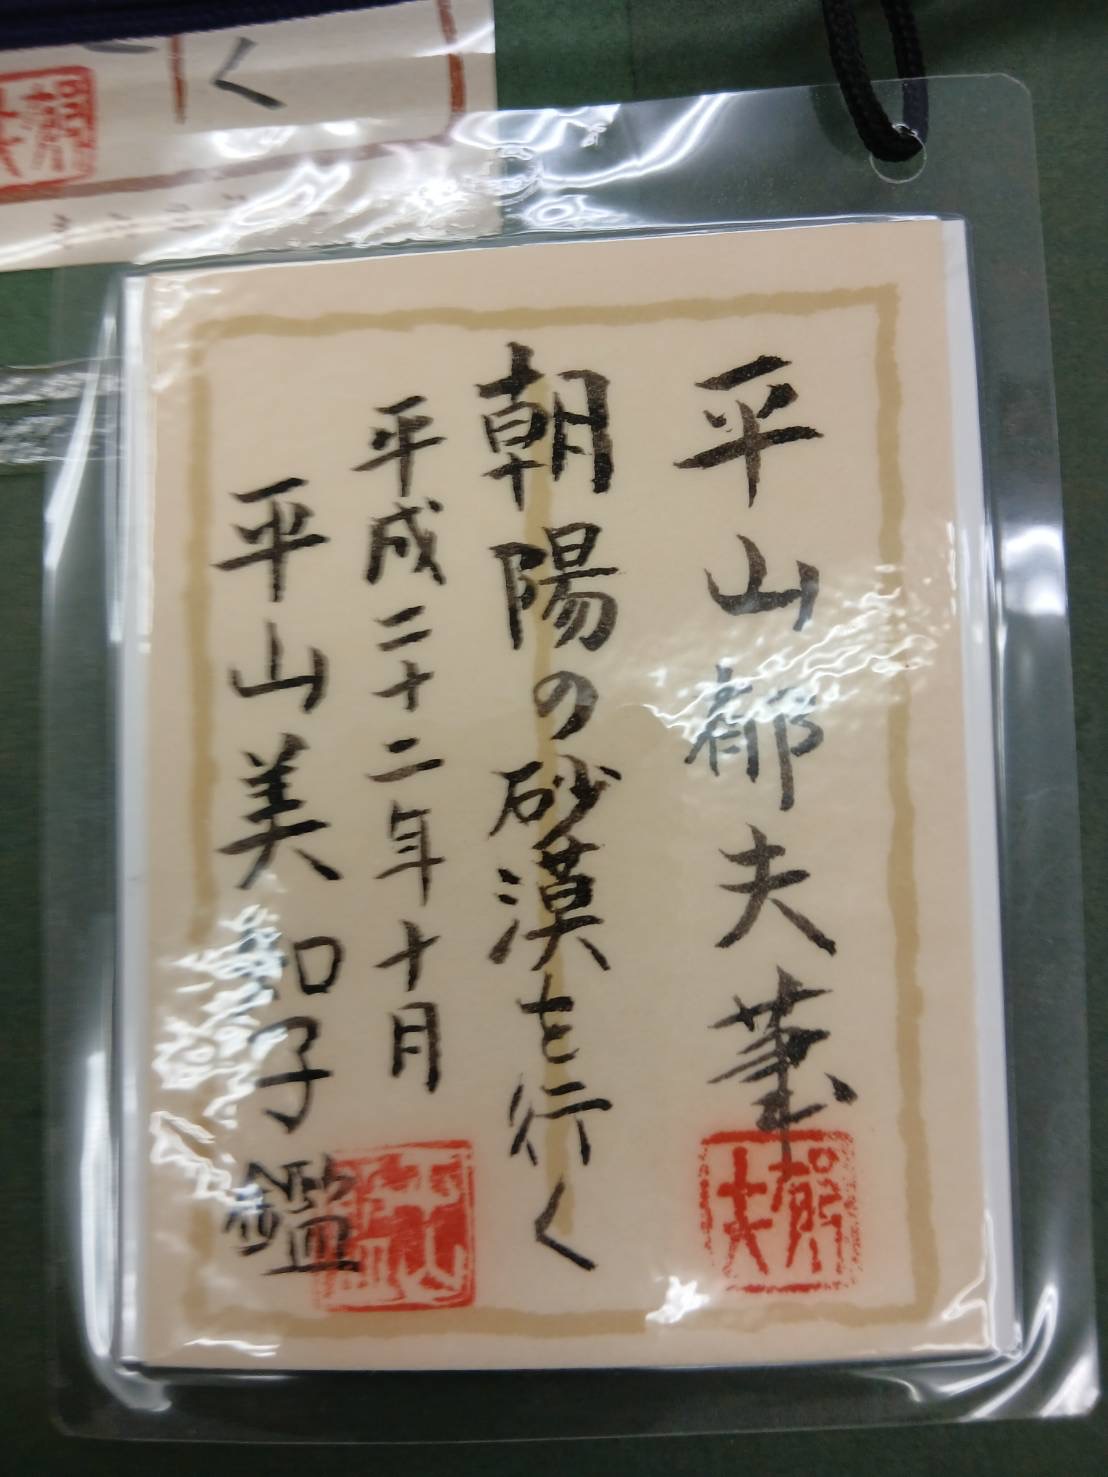 平山郁夫筆
朝陽の砂漠を行く
平成二十二年十月
平山美知子鑑
郁夫
く